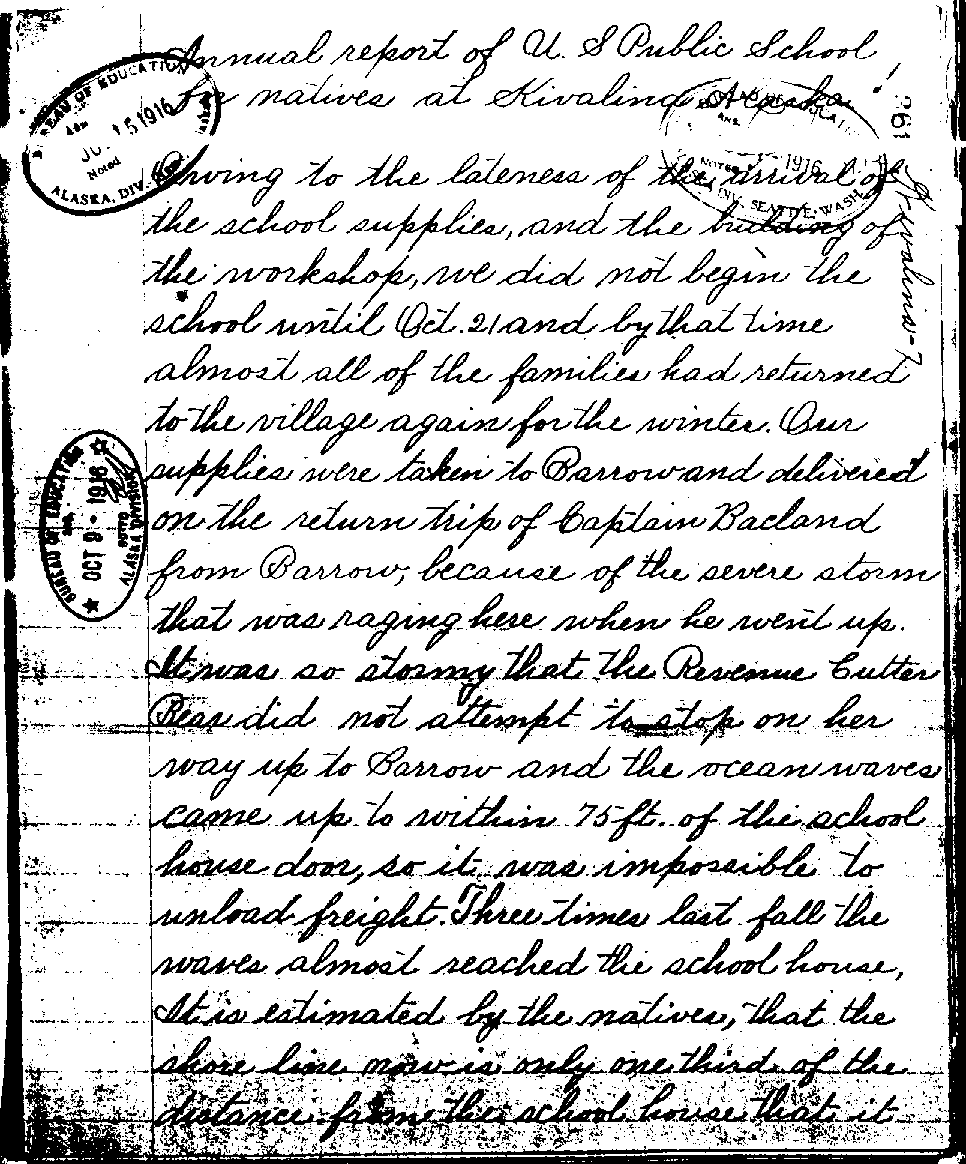 Annual report of U. S Public School
for natives at Kivalina Alaska.
BUREAU OF EDUCATION
15 1916
Noted
ALASKA, DIV.
1916
SEATTLE, WASH.
Owing to the lateness of the arrival of
the school supplies, and the building of
the workshop, we did not begin the
school until Oct. 21 and by that time
almost all of the families had returned
to the village again for the winter. Our
supplies were taken to Barrow and delivered
on the return trip of Captain Bacland
from Barrow, because of the severe storm
that was raging here when he went up.
It was so stormy that the Revenue Cutter
Bear did not attempt to stop on her
way up to Barrow and the ocean waves
came up to within 75 ft. of the school
house door, so it was impossible to
unload freight. Three times last fall the
waves almost reached the school house,
It is estimated by the natives, that the
shore line now is only one third of the
distance from the school house that it
BUREAU OF EDUCATION
OCT 9 - 1916
NOTED
ALASKA DIVISION